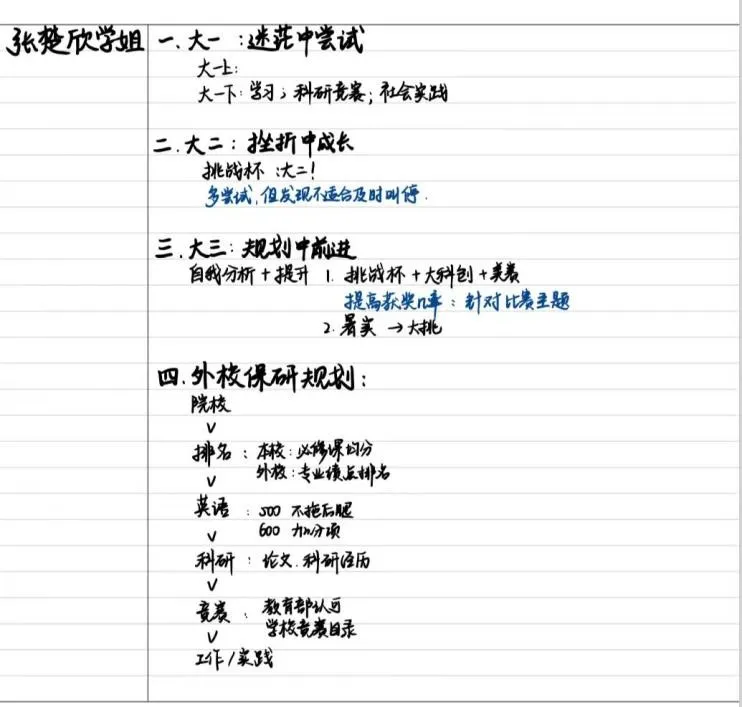 张楚欣学姐
一.大一:迷茫中尝试
大一上:
大一下:学习;科研竞赛;社会实践
二.大二:挫折中成长
挑战杯:大二!
多尝试,但发现不适合及时叫停.
三.大三:规划中前进
自我分析+提升 1. 挑战杯+大科创+美赛
提高获奖几率:针对比赛主题
2.暑实→大挑
四.外校保研规划:
院校
∨
排名:本校:必修课均分
外校:专业绩点排名
∨
英语:500 不拖后腿
600 加分项
∨
科研:论文.科研经历
∨
竞赛:教育部认可
学校竞赛目录
∨
工作/实践